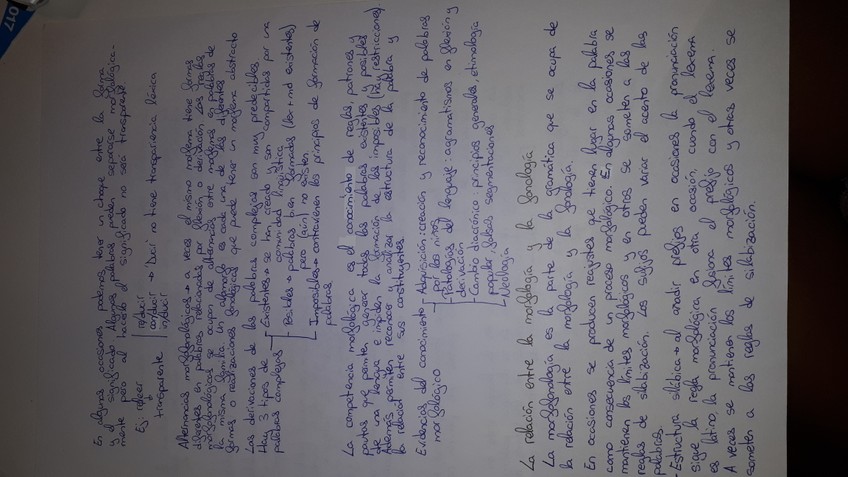 En algunas ocasiones podemos tener un choque entre la forma
y el significado. Algunas palabras pueden separarse morfológica-
mente pero al hacerlo el significado no será transparente
Ej: rehacer
↓
transparente
reducir
conducir
inducir
→ 'Ducir' no tiene transparencia léxica
Alternancias morfofonológicas → a veces el mismo morfema tiene formas
diferentes en palabras relacionadas por flexión o derivación. Las reglas
morfofonológicas se ocupan de las alternancias entre morfemas en palabras de
la misma familia. Un alomorfo es cada una de las diferentes
formas o realizaciones fonológicas que puede tener un morfema abstracto
Las derivaciones de las palabras complejas son muy predecibles
Hay 3 tipos de
palabras complejas
Existentes → se han creado y son compartidas por una
comunidad lingüística
Posibles → palabras bien formadas (lex + md existentes)
pero (aún) no existen
Imposibles → contravienen los principios de formación de
palabras
La competencia morfológica es el conocimiento de reglas, patrones y
pautas que permiten generar todas las palabras existentes y posibles
de una lengua e impiden la formación de las imposibles (hay restricciones)
Además permiten reconocer y analizar la estructura de la palabra y
la relación entre sus constituyentes.
Evidencias del conocimiento
morfológico
Adquisición: creación y reconocimiento de palabras
por los niños
Patologías del lenguaje: agramatismos en flexión y
derivación
Cambio diacrónico: principios generales, etimología
popular, falsas segmentaciones
Neología
La relación entre la morfología y la fonología
La morfofonología es la parte de la gramática que se ocupa de
la relación entre la morfología y la fonología.
En ocasiones se producen reajustes que tienen lugar en la palabra
como consecuencia de un proceso morfológico. En algunas ocasiones se
mantienen los límites morfológicos y en otros se someten a las
reglas de silabización. Los sufijos pueden variar el acento de las
palabras.
- Estructura silábica → al añadir prefijos en ocasiones la pronunciación
sigue la regla morfológica en otra ocasión, cuando el lexema
es latino, la pronunciación fusiona el prefijo con el lexema.
A veces se mantienen los límites morfológicos y otras veces se
someten a las reglas de silabización.
2017